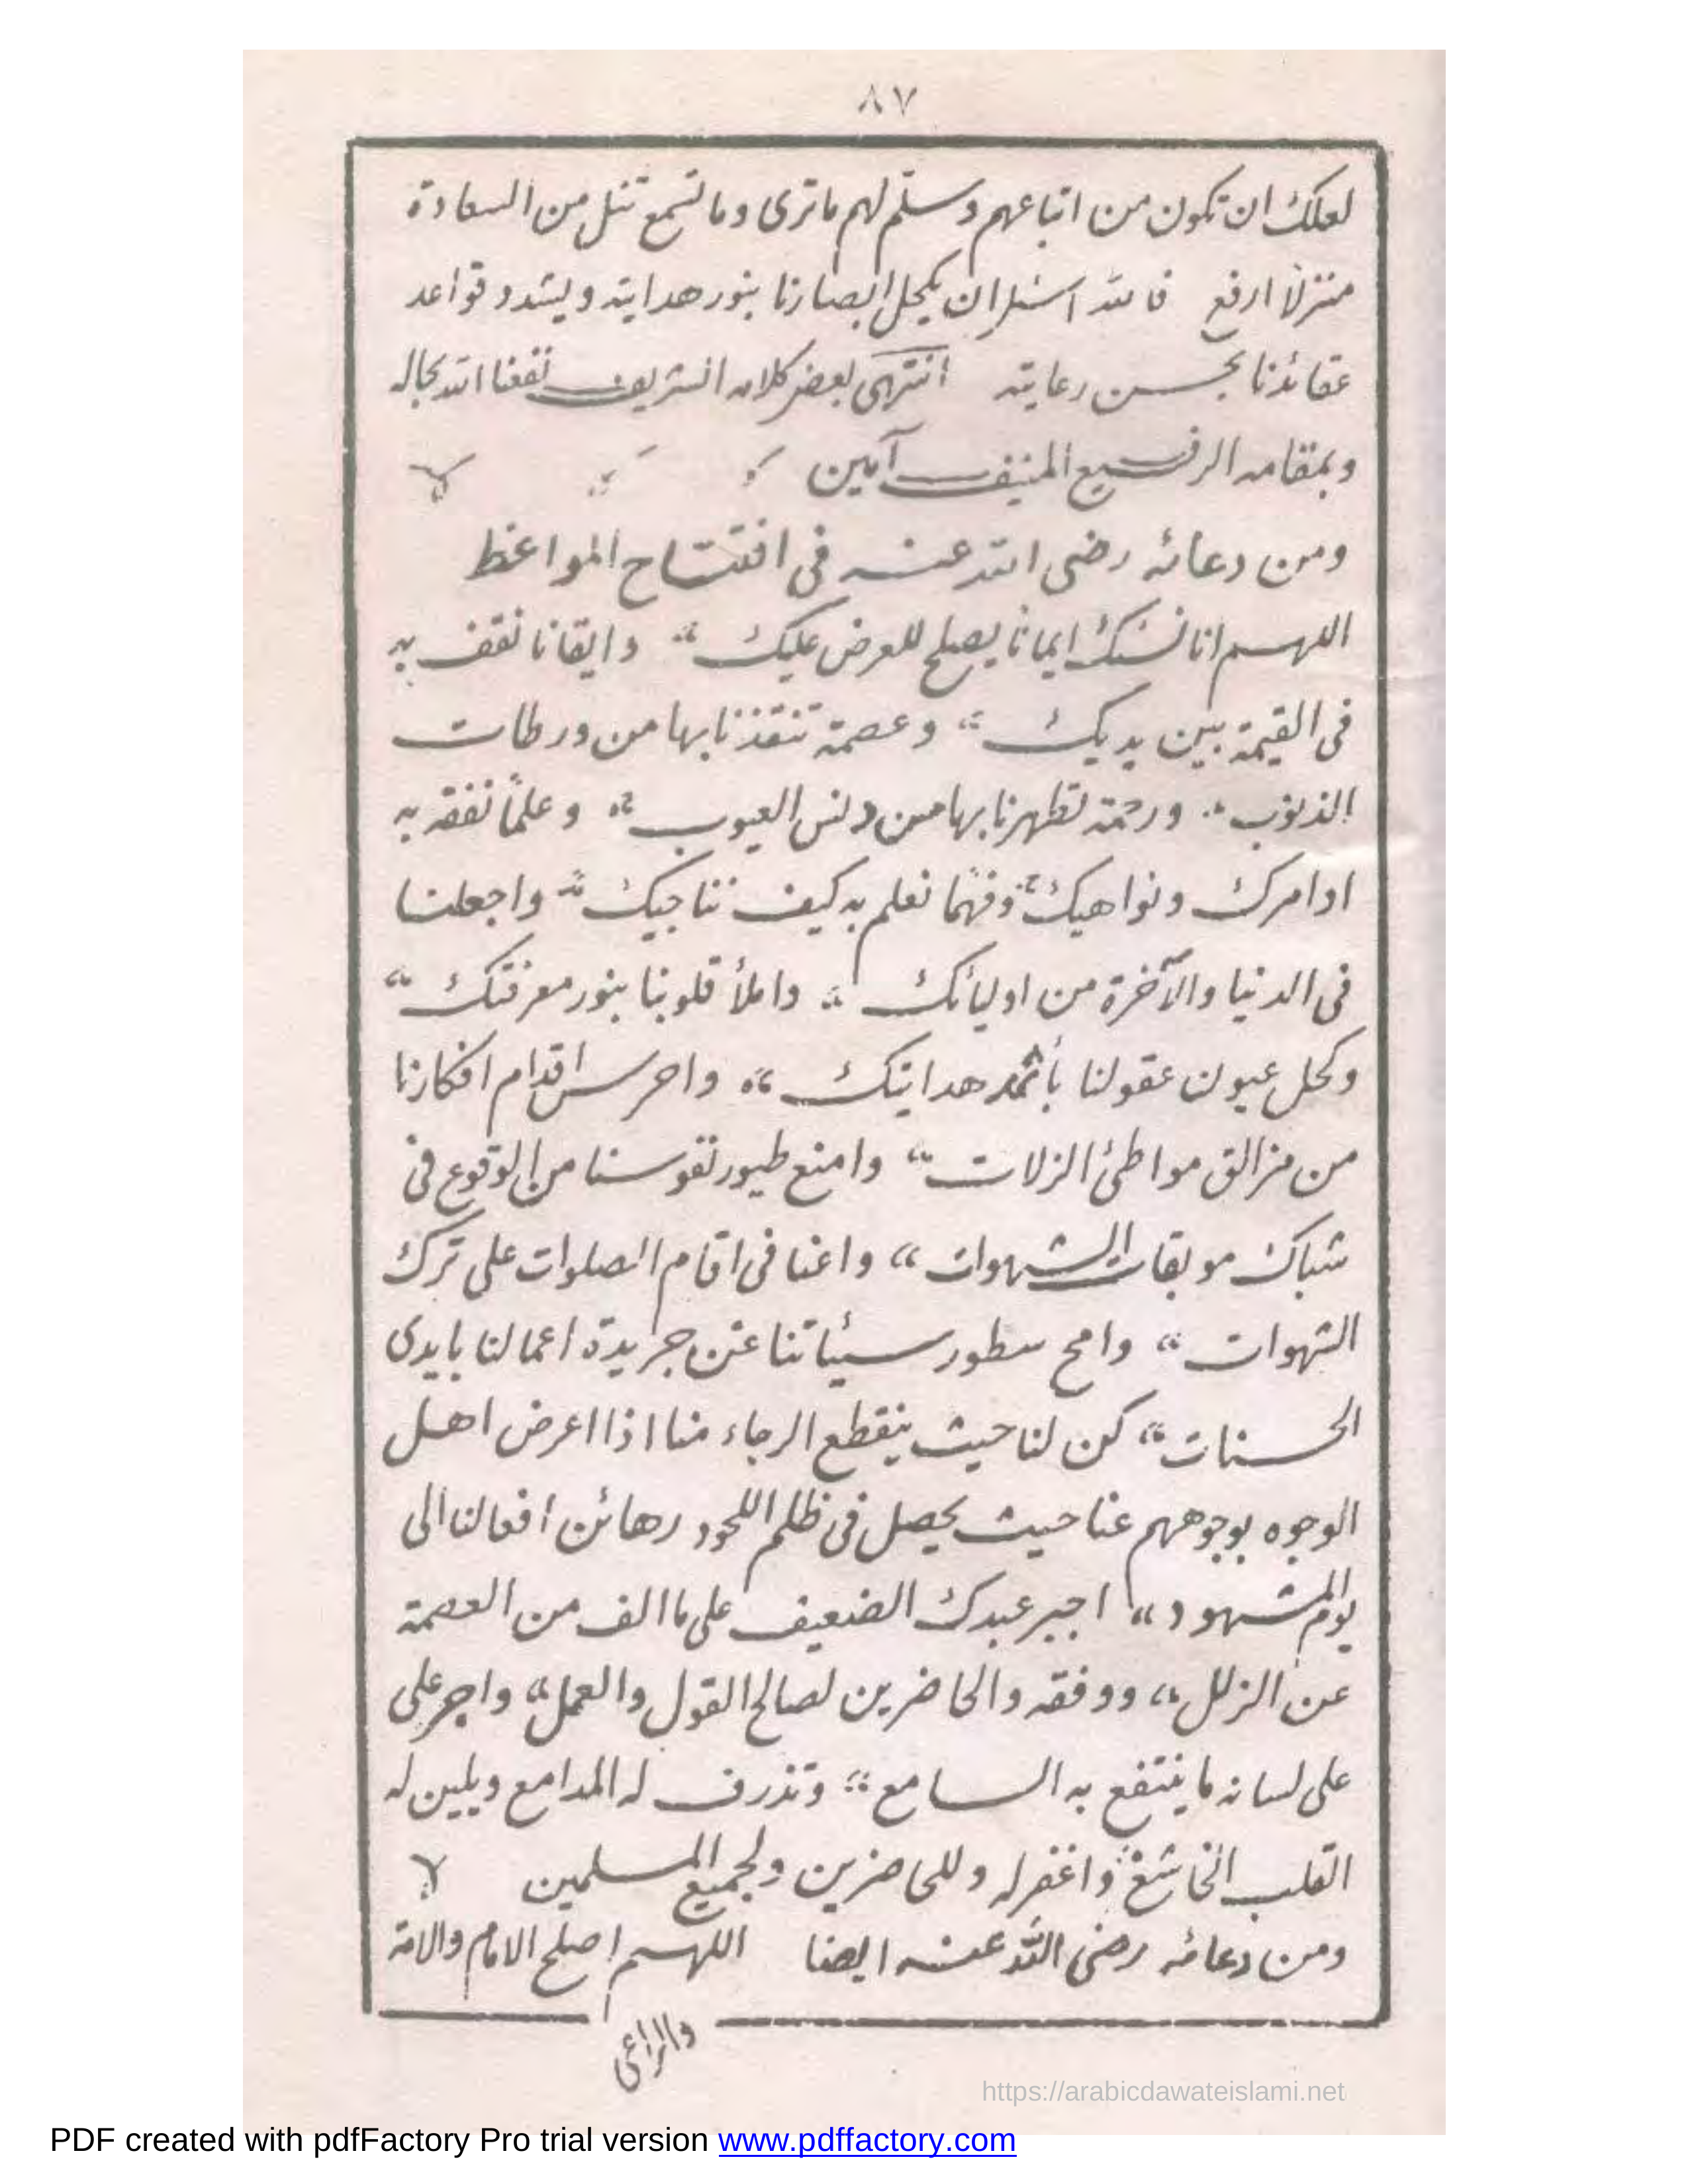 ٨٧
لعلك ان تكون من اتباعهم وسلّم لهم ماترى وما تسمع تنل من السعادة
منزلاً ارفع فالله اسئل ان يكحل ابصارنا بنور هدايته ويشدد قواعد
عقائدنا بحسن رعايته انتهى بعض كلامه الشريف نفعنا الله بحاله
وبمقامه الرفيع المنيف آمين
ومن دعائه رضى الله عنه فى افتتاح المواعظ
اللهم انا نسئلك ايماناً يصلح للعرض عليك وايقانا نقف به
فى القيمة بين يديك وعصمة تنقذنا بها من ورطات
الذنوب ورحمة تطهرنا بها من دنس العيوب وعلماً نفقه به
اوامرك ونواهيك وفهمًا نعلم به كيف نناجيك واجعلنا
فى الدنيا والآخرة من اوليائك واملأ قلوبنا بنور معرفتك
وكحل عيون عقولنا بأثمد هدايتك واحرس اقدام افكارنا
من مزالق مواطئ الزلات وامنع طيور نفوسنا من الوقوع فى
شباك موبقات الشهوات واعنا فى اقام الصلوات على ترك
الشهوات وامح سطور سيئاتنا عن جريدة اعمالنا بايدى
الحسنات كن لنا حيث ينقطع الرجاء منا اذا اعرض اهل
الوجوه بوجوههم عنا حيث يحصل فى ظلم اللحود رهائن افعالنا الى
يوم المشهود اجبر عبدك الضعيف على ما الف من العصمة
عن الزلل ووفقه والحاضرين لصالح القول والعمل واجر على
على لسانه ما ينتفع به السامع وتذرف له المدامع ويلين له
القلب الخاشع واغفر له وللحاضرين ولجميع المسلمين
ومن دعائه رضى الله عنه ايضا اللهم اصلح الامام والامة
والراعى
https://arabicdawateislami.net
PDF created with pdfFactory Pro trial version www.pdffactory.com